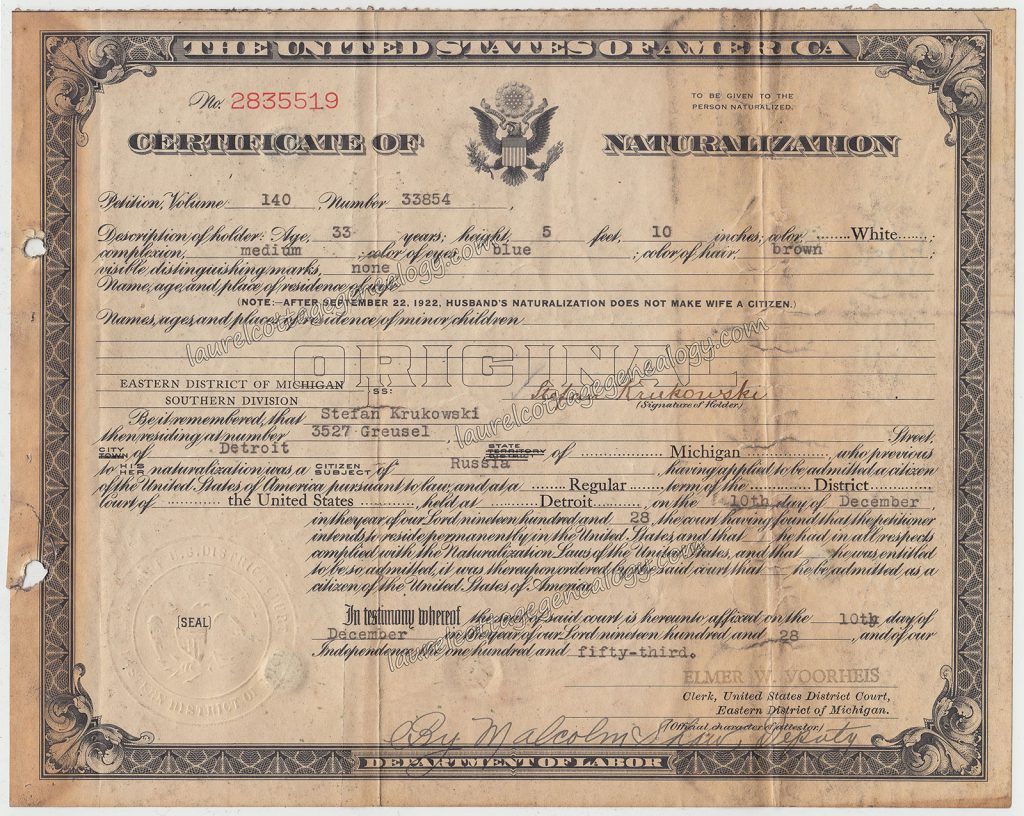 THE UNITED STATES OF AMERICA
No. 2835519
TO BE GIVEN TO THE
PERSON NATURALIZED.
CERTIFICATE OF NATURALIZATION
Petition, Volume 140, Number 33854,
Description of holder: Age, 33 years; height, 5 feet, 10 inches; color, White;
complexion, medium; color of eyes, blue; color of hair, brown;
visible distinguishing marks, none
Name, age, and place of residence of wife
(NOTE:—AFTER SEPTEMBER 22, 1922, HUSBAND'S NATURALIZATION DOES NOT MAKE WIFE A CITIZEN.)
Names, ages, and places of residence of minor children
laurelcottagegenealogy.com
laurelcottagegenealogy.com
ORIGINAL
EASTERN DISTRICT OF MICHIGAN
SOUTHERN DIVISION
ss:
Stefan Krukowski
(Signature of Holder.)
Be it remembered, that Stefan Krukowski
then residing at number 3527 Greusel, Street,
CITY TOWN of Detroit STATE TERRITORY of Michigan, who previous
to HIS HER naturalization was a CITIZEN SUBJECT of Russia, having applied to be admitted a citizen
of the United States of America pursuant to law, and at a Regular term of the District
Court of the United States, held at Detroit, on the 10th day of December,
in the year of our Lord nineteen hundred and 28, the court having found that the petitioner
intends to reside permanently in the United States, and that he had in all respects
complied with the Naturalization Laws of the United States, and that he was entitled
to be so admitted, it was thereupon ordered by the said court that he be admitted as a
citizen of the United States of America.
[SEAL]
In testimony whereof the seal of said court is hereunto affixed on the 10th day of
December in the year of our Lord nineteen hundred and 28, and of our
Independence the one hundred and fifty-third.
laurelcottagegenealogy.com
ELMER W. VOORHEIS
Clerk, United States District Court,
Eastern District of Michigan.
(Official character of attestor.)
By Malcolm Deputy
DEPARTMENT OF LABOR